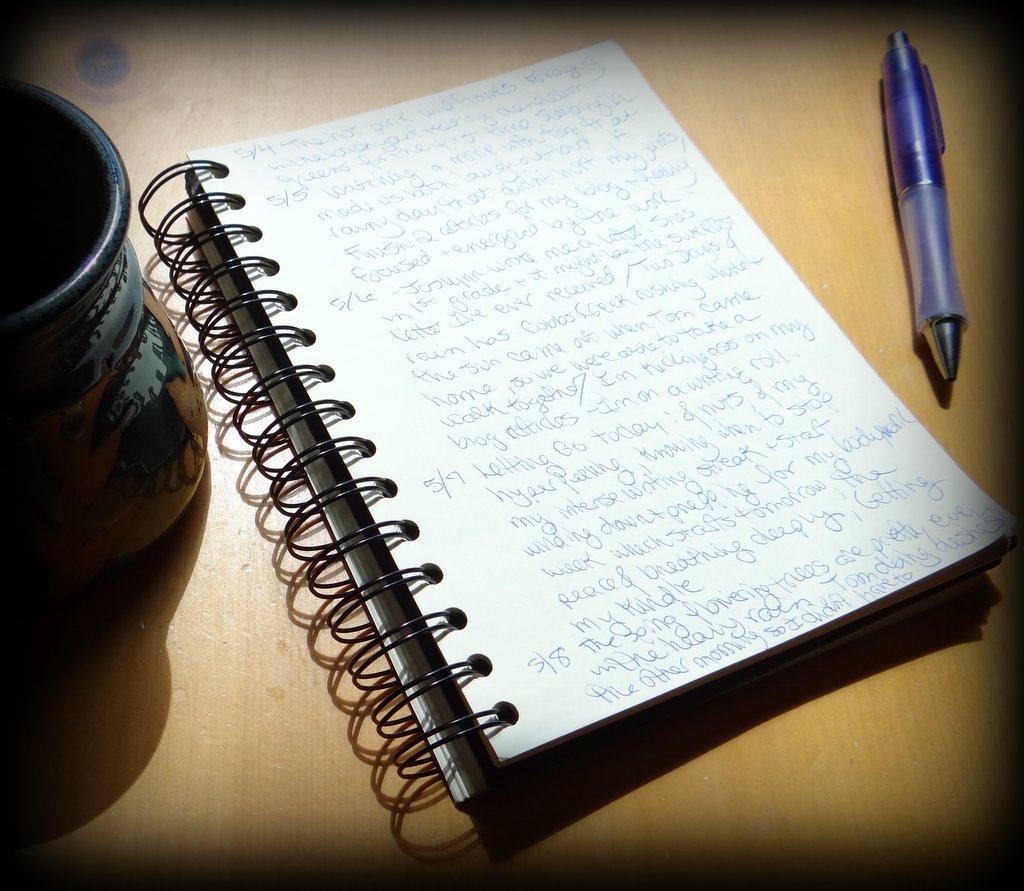 5/4 The hot pink wildflowers foraging
in the backyard + eating dandelion
greens for the first time
5/5 Watching a movie with Tom that
made us both laugh out loud / A
rainy day that didn't hurt my joints /
Finish 2 articles for my blog + feeling
focused + energized by the work
5/6 - wrote me a letter. She's
in 1st grade + it might be the sweetest
letter I've ever received / Two Days of
rain has Cobbs Creek rushing
the sun came out when Tom came
home so we were able to take a
walk together / I'm kicking ass on my
blog articles - I'm on a writing roll.
5/7 Letting Go today: of nuts, of my
hyper peeling, knowing when to stop
my intense writing streak + start
winding down + prepping for my
week which starts tomorrow, the
peace of breathing deeply, Getting
my Kindle
5/8 The song of trees are pretty, even
in the heavy rain, Tom doing dishes
the other morning so I didn't have to